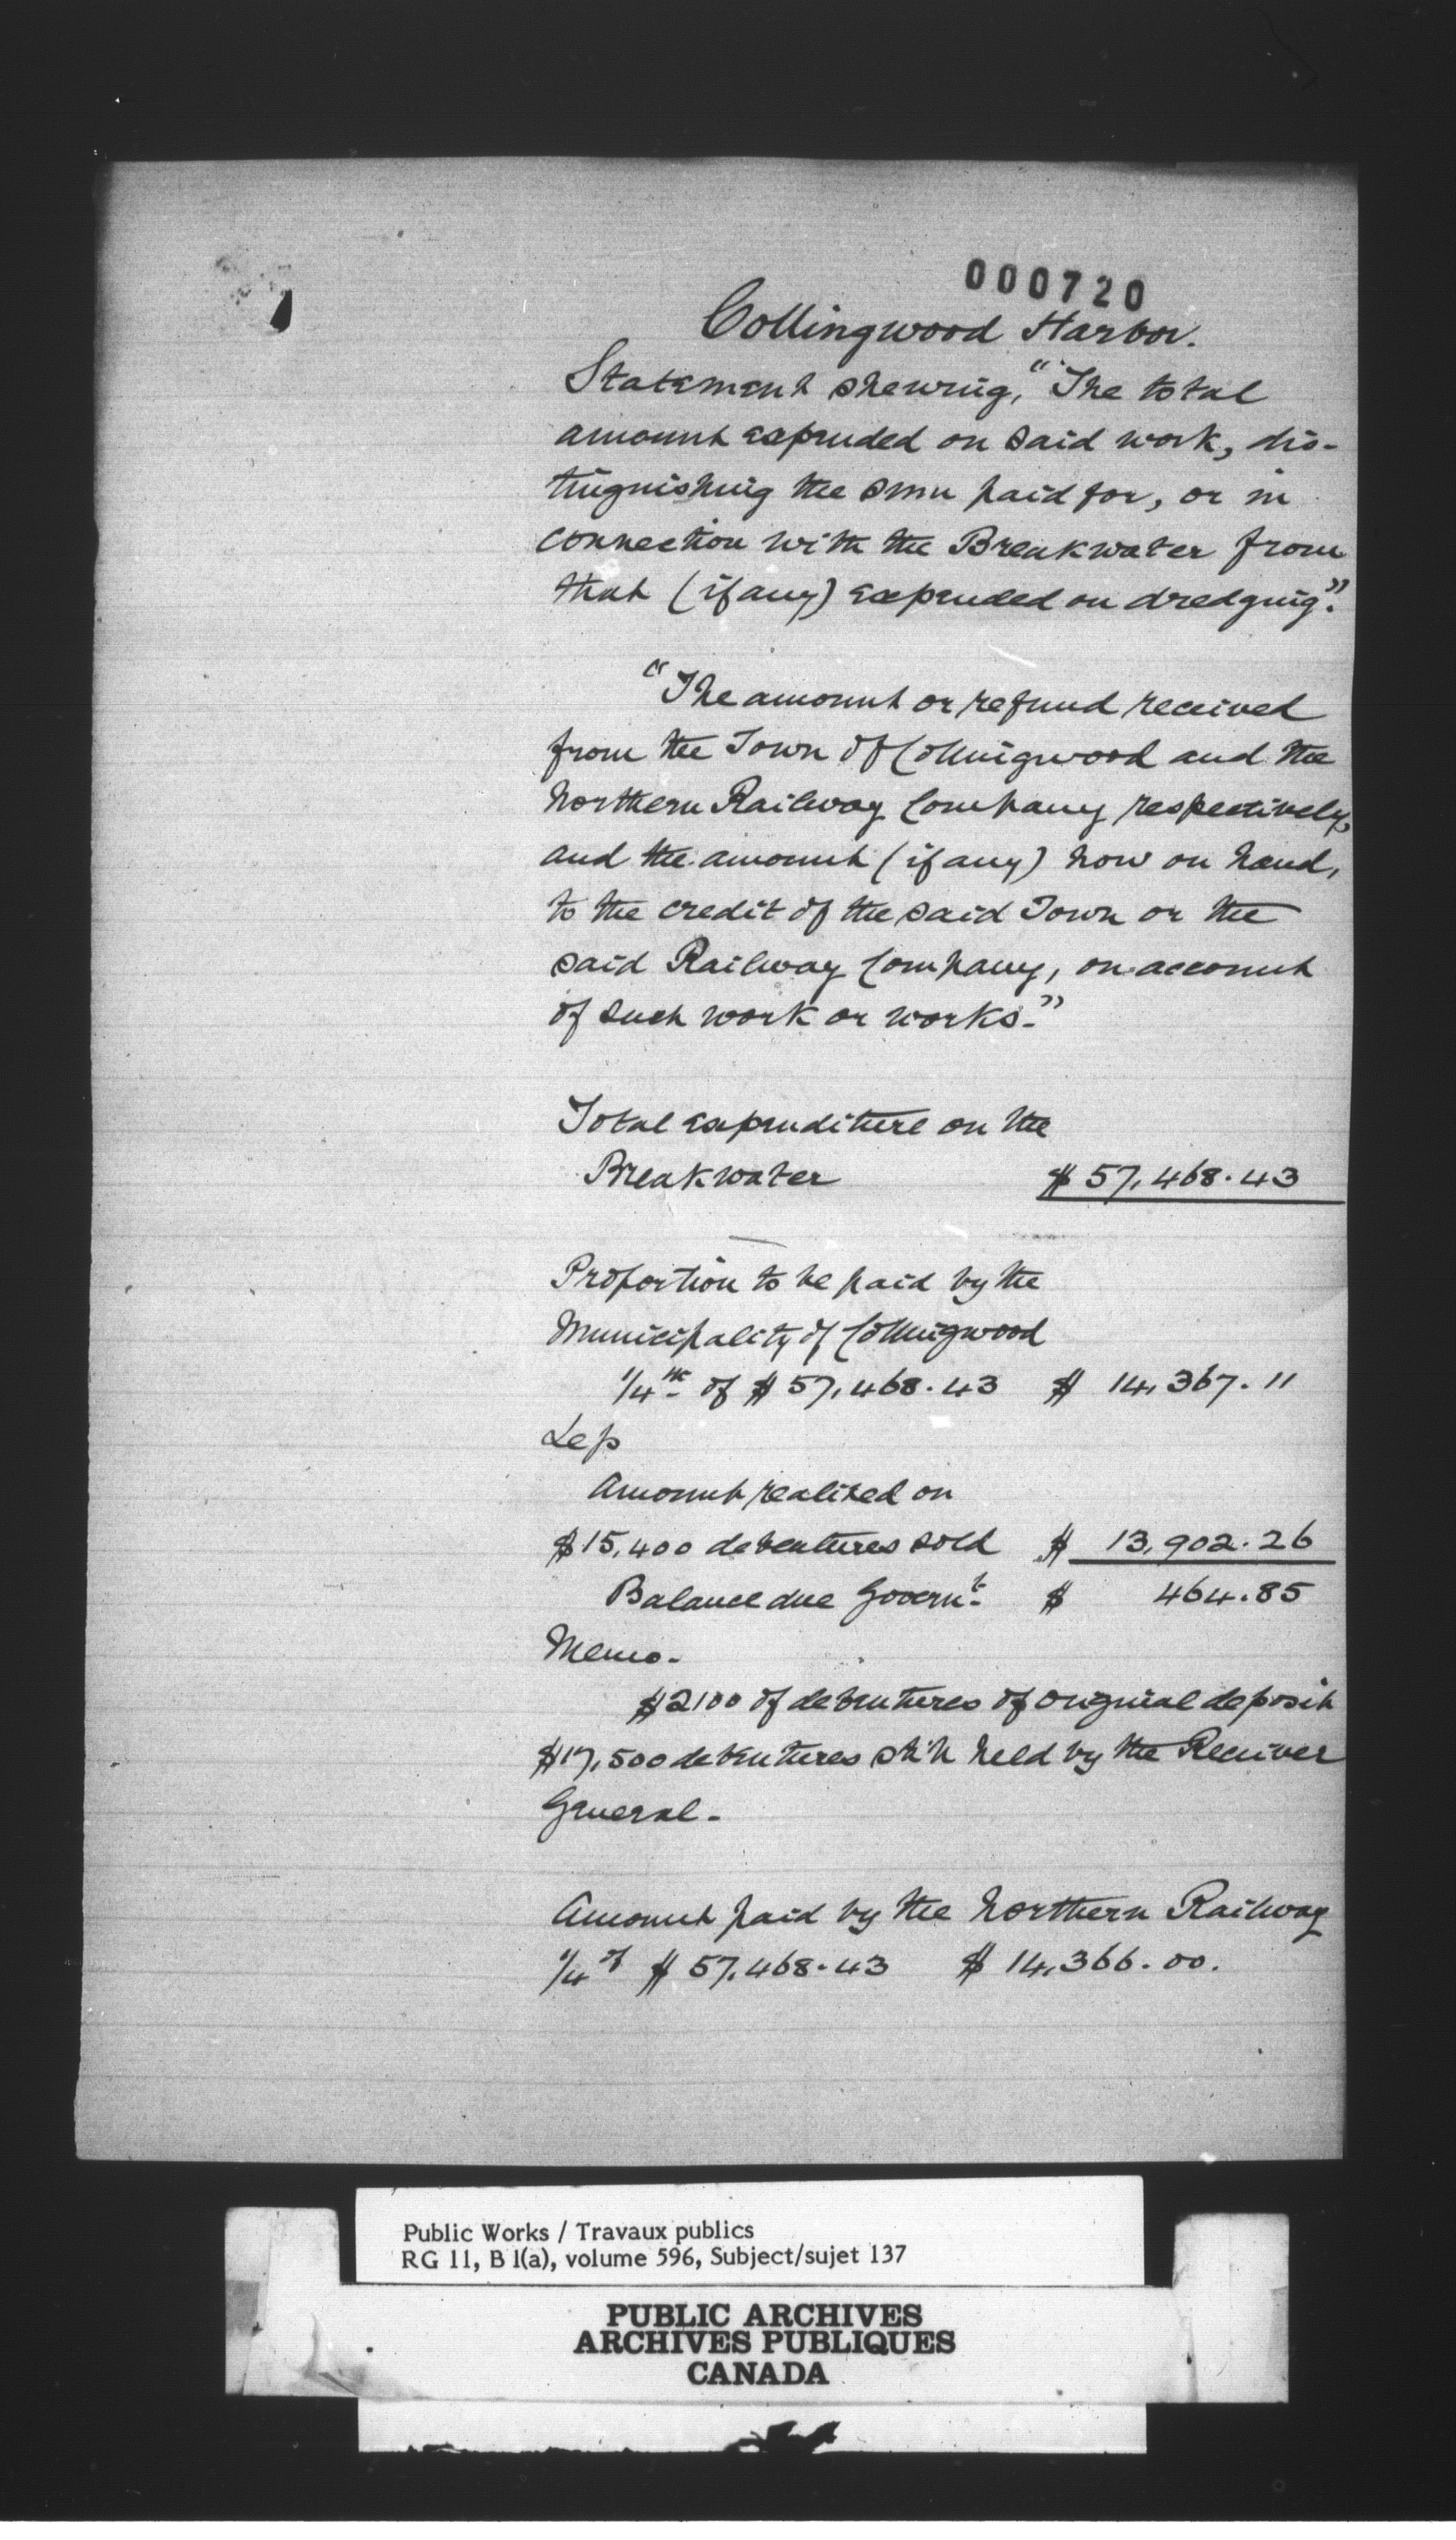 000720
Collingwood Harbor.
Statement shewing, "The total
amount expended on said work, dis-
tinguishing the sum paid for, or in
connection with the Breakwater from
that (if any) expended on dredging".
"The amount or refund received
from the Town of Collingwood and the
Northern Railway Company respectively,
and the amount (if any) now on hand,
to the credit of the said Town or the
said Railway Company, on account
of such work or works."
Total expenditure on the
Breakwater $ 57,468.43
Proportion to be paid by the
Municipality of Collingwood
1/4th of $ 57,468.43 $ 14,367.11
Less
Amount realized on
$15,400 debentures sold $ 13,902.26
Balance due Governt $ 464.85
Memo-
$2100 of debentures of original deposit
$17,500 debentures still held by the Receiver
General-
Amount paid by the Northern Railway
1/4 of $ 57,468.43 $ 14,366.00.
Public Works / Travaux publics
RG 11, B 1(a), volume 596, Subject/sujet 137
PUBLIC ARCHIVES
ARCHIVES PUBLIQUES
CANADA